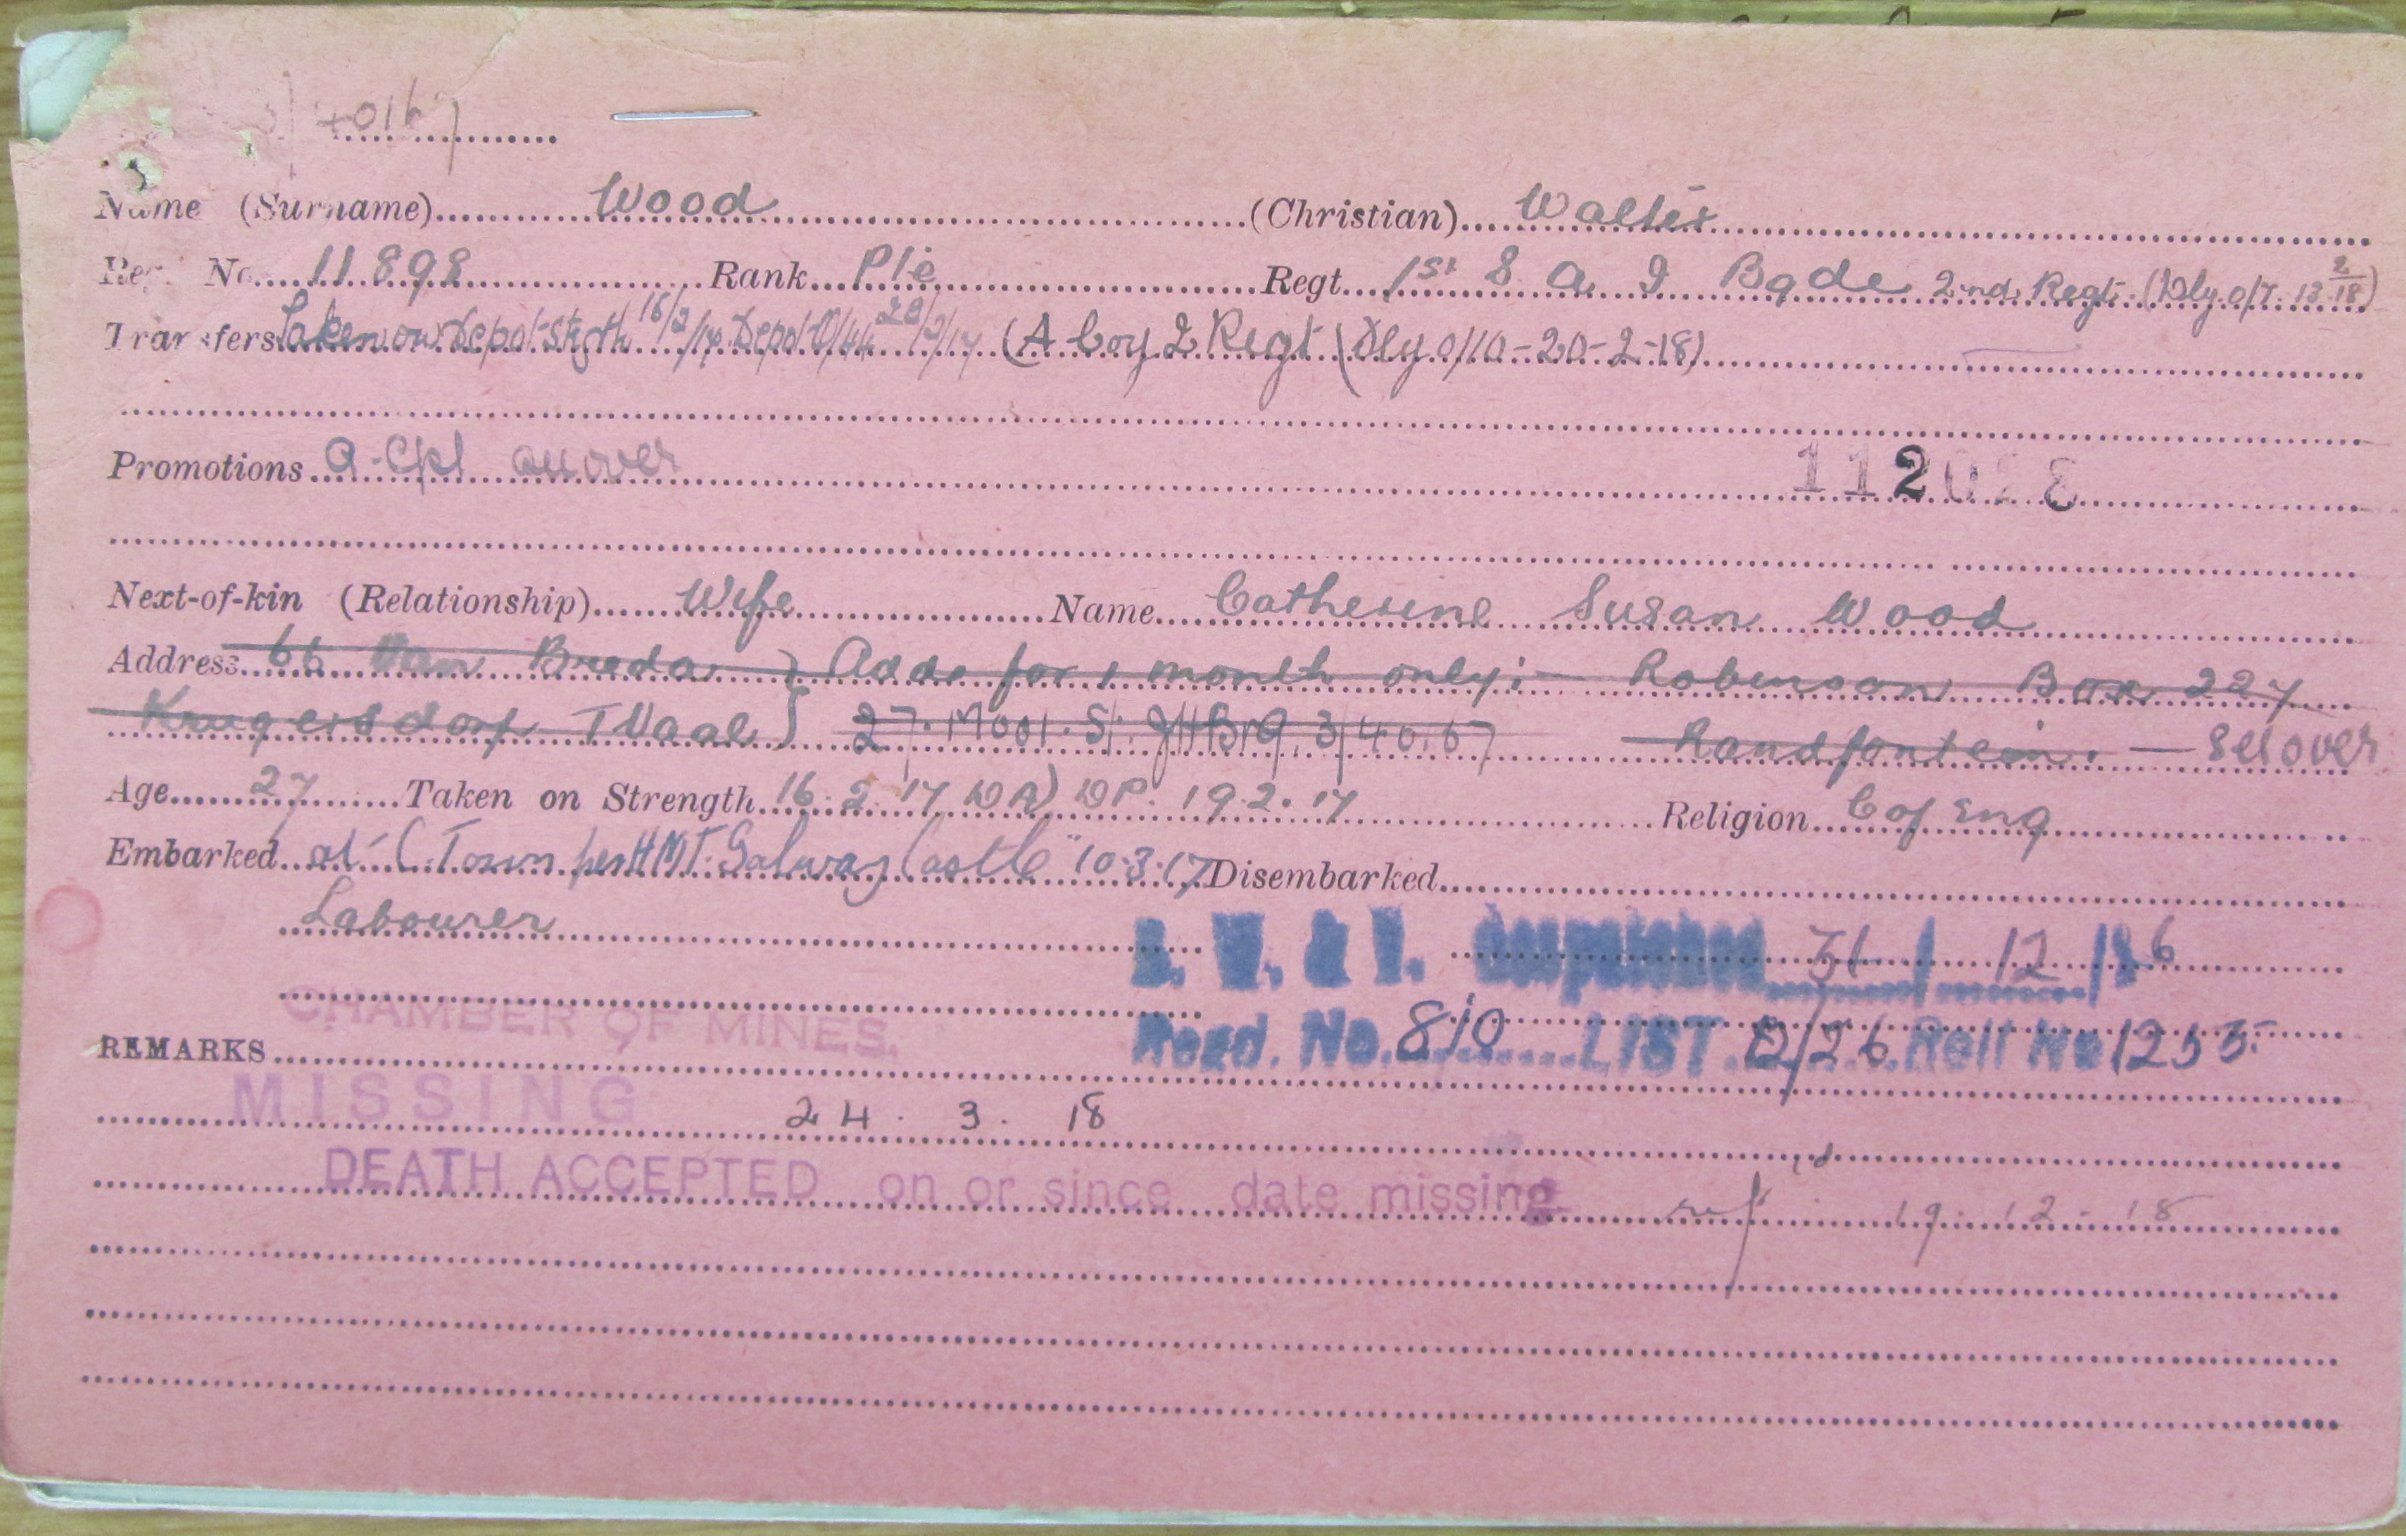 3/40167
Name (Surname) Wood (Christian) Walter
Reg. No. 11898 Rank Pte Regt. 1st S A I Bgde 2nd Regt. (Dly o/7. 13 2/18)
Transfers Taken on Depot Strgth 16/2/17 Depot O/44 20/2/17 (A Coy 2 Regt (Dly o/10-20-2-18)
Promotions A-Cpl over
112028
Next-of-kin (Relationship) Wife Name Catherine Susan Wood
Address 66 Van Breda } Add: for 1 month only:- Robinson Box 227
Krugersdorp TVaal } 27. Mooi. St. JHBRG. 3/40167 Randfontein. — See over
Age 27 Taken on Strength 16.2.17 DR) DP. 19.2.17 Religion C of Eng
Embarked at C. Town per HMT. Galway Castle" 10.3.17 Disembarked
Labourer
B. W. & V. Despatched 31/12/26
CHAMBER OF MINES.
Recd. No. 810 LIST D/26 Roll No 1255
REMARKS
MISSING 24. 3. 18
DEATH ACCEPTED on or since date missing 19.12.18